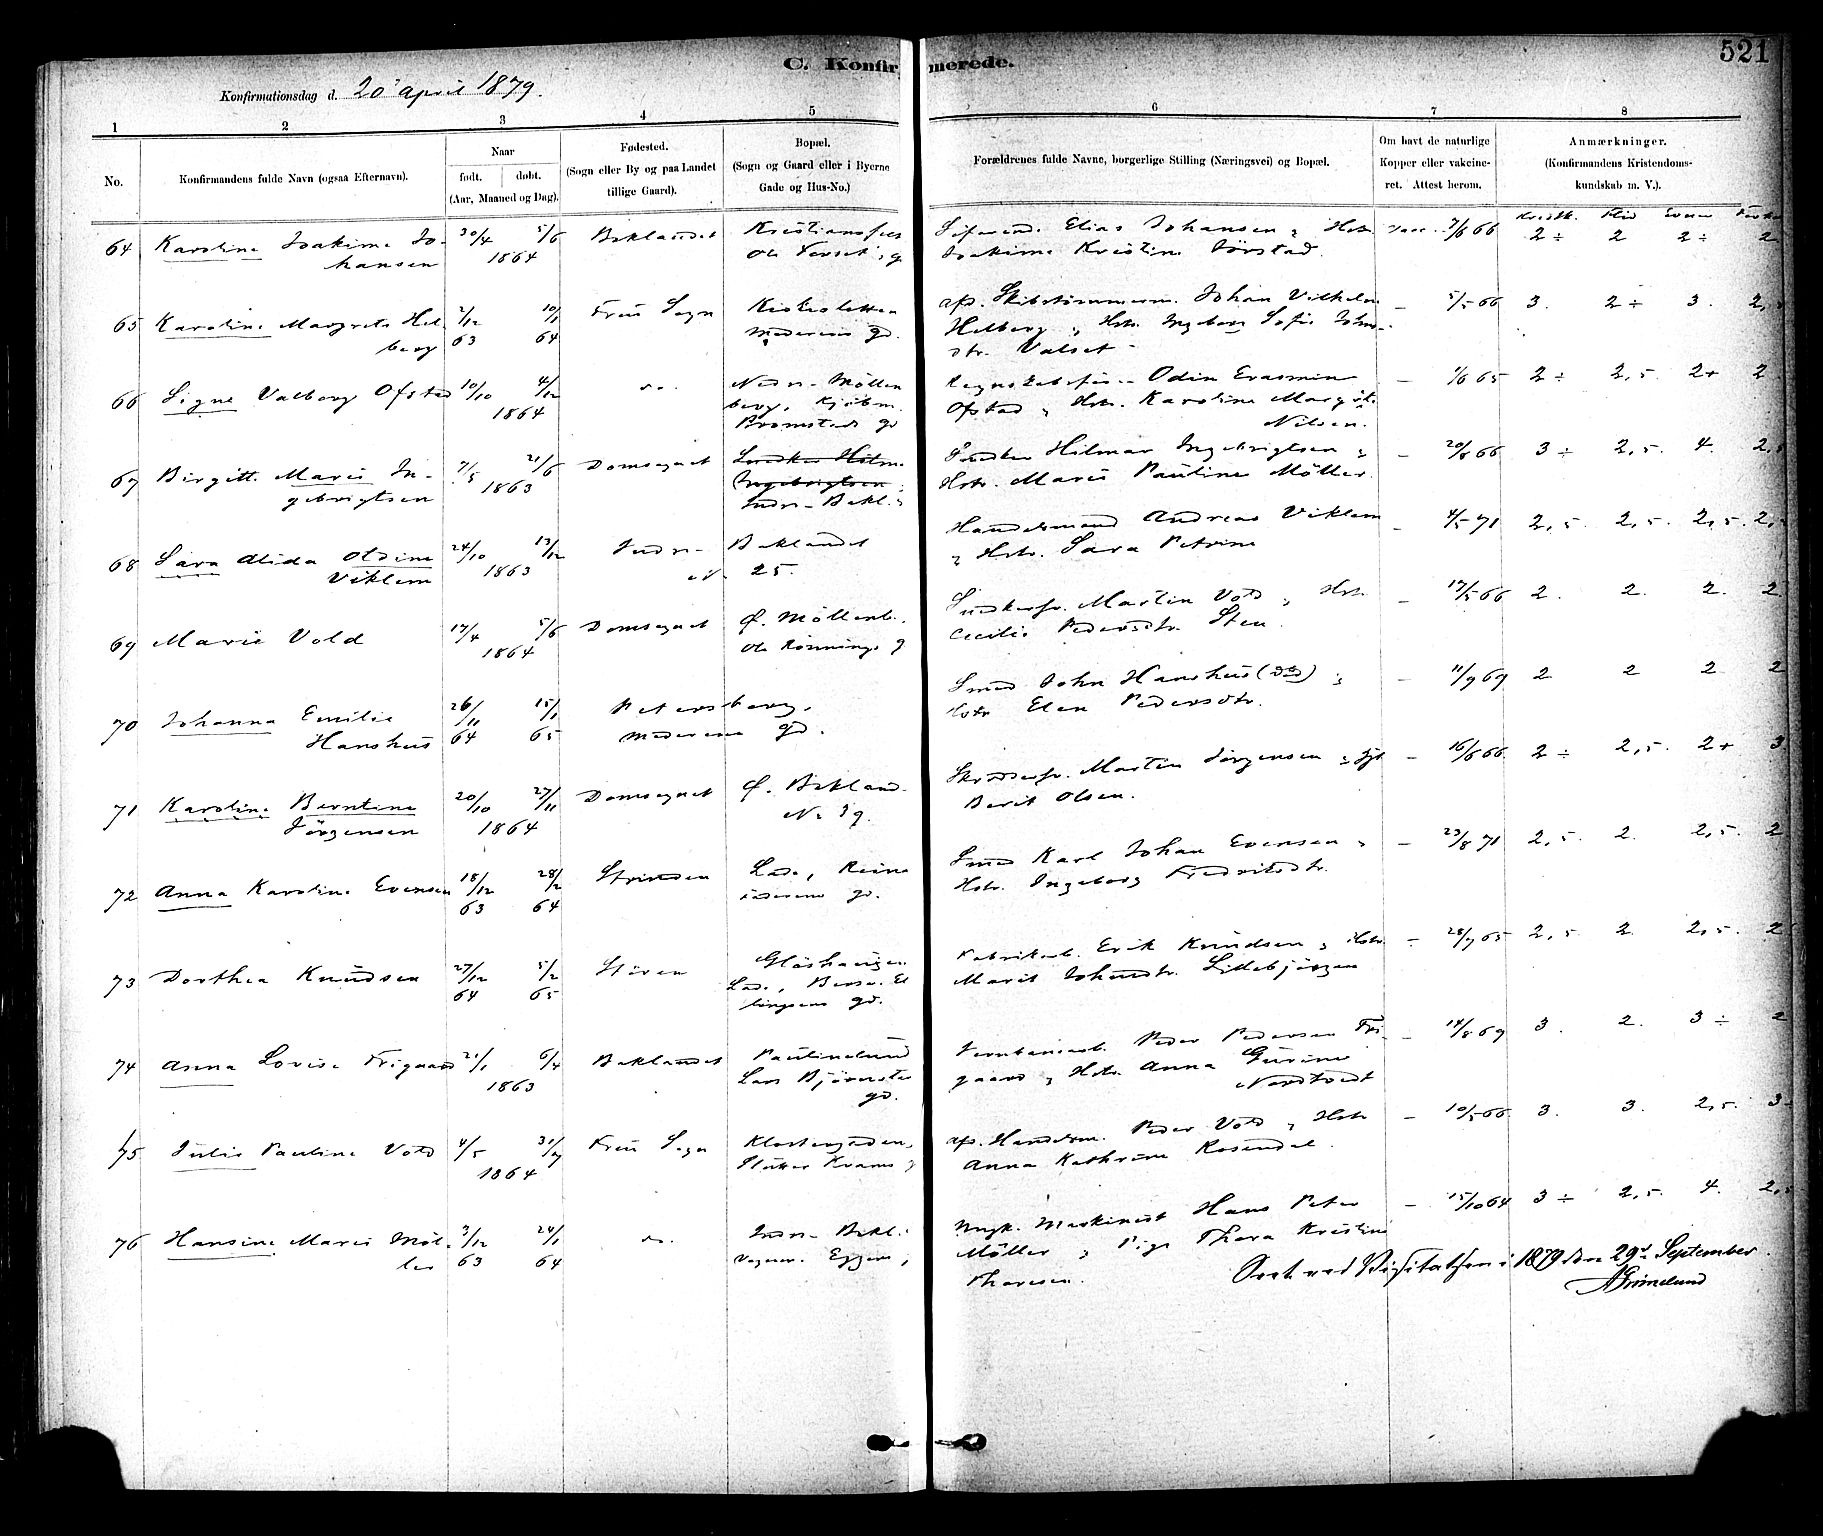 C. Konfirmerede.
521
Konfirmationsdag d. 20' april 1879.
1 2 3 4 5 6 7 8
No.
Konfirmandens fulde Navn (ogsaa Efternavn).
Naar
født. døbt.
(Aar, Maaned og Dag).
Fødested.
(Sogn eller By og paa Landet
tillige Gaard).
Bopæl.
(Sogn og Gaard eller i Byerne
Gade og Hus-No.)
Forældrenes fulde Navne, borgerlige Stilling (Næringsvei) og Bopæl.
Om havt de naturlige
Kopper eller vakcine-
ret. Attest herom.
Anmærkninger.
(Konfirmandens Kristendoms-
kundskab m. V.).
64 Karoline Joakime Jo- 30/4 5/6 Baklandet
hansen 1864
Elias Johansen & Hstr. vacc. 7/6 66 2 ÷ 2 2 ÷ 2
Joakime Kristine Törstad.
65 Karoline Margrete Hel- 2/12 10/1 Frue Sogn
berg 63 64 gd.
afd. Skibstömmerm. Johan Vilhelm – 5/5 66 3. 2 ÷ 3. 2,5
Helberg & Hstr. Ingeborg Sofie Johns-
dtr. Valset
66 Signe Valborg Ofstad 10/10 4/12 do. Nedr. Möllen
1864 berg, Kjöbm.
Bromstads gd
Odin Erasmin – 1/6 65 2 ÷ 2,5. 2+ 2
Ofstad & Hstr. Karoline Margrete
Nilsen.
67 Birgitt. Marie In- 7/5 21/6 Domsognet Snedker Hilm.
gebrigtsen 1863 Ingebrigtsen
Indr. Bakl.
Snedker Hilmar Ingebrigtsen & – 20/8 66 3 ÷ 2,5. 4. 2,5
Hstr. Marie Pauline Möller.
68 Sara Alida Otdine 24/10 13/12 Indr. Baklandet
Viklem 1863 25.
Handelsmand Andreas Viklem – 4/5 71 2,5. 2,5. 2,5. 2,5
& Hstr. Sara Petrine
69 Marie Vold 17/4 5/6 Domsognet Ø. Möllenb.
1864 Ole Rönnings g
Snedkersv. Martin Vold & Hstr. – 17/5 66 2. 2. 2. 2
Cecilie Pedersdtr. Sten.
70 Johanna Emilie 26/11 15/1 Petersborg,
Hanshus 64 65 gd.
Smed John Hanshus (död) & – 11/9 69 2 2 2 2
Hstr Elen Pedersdtr.
71 Karoline Berntine 20/10 27/11 Domsognet Ø. Bakland.
Jörgensen 1864
Skræddersv. Martin Jörgensen – 16/6 66. 2 ÷ 2,5. 2+ 3
Berit Olsen.
72 Anna Karoline Evensen 18/12 28/2 Strinden Lade,
63 64 gd.
Smed Karl Johan Evensen & – 23/8 71 2,5. 2. 2,5. 2
Hstr. Ingeborg Fredriksdtr.
73 Dorthea Knudsen 27/12 5/2 Stören Glöshaugen
64 65 Lade,
gd.
Fabrikarb. Erik Knudsen & Hstr. – 28/9 65 2,5. 2. 2,5. 2
Marit Lillebjörgen
74 Anna Lovise Frigaard 21/1 6/4 Baklandet Paulinelund
1863 Lars
gd.
Jernbanearb. Peder Pedersen Fri- – 14/8 69 3. 2. 3 ÷ 2
gaard & Hstr. Anna Gurine
Nordtvedt
75 Julie Pauline Vold 4/5 31/7 Frue Sogn Klostergaden,
1864
afd. Handelsm. Peder Vold & Hstr – 10/5 66. 3. 3. 2,5. 3
Anna Kathrine Rosendal.
76 Hansine Marie Möl- 3/12 24/1 do. Indr. Bakl.
ler 63 64
Hans Peter – 15/10 64 3 ÷ 2,5. 4. 2,5
Möller & Pige Thora Kristine
Thoresen.
Seet ved Visitatsen i 1879 den 29d September.
AGrimelund